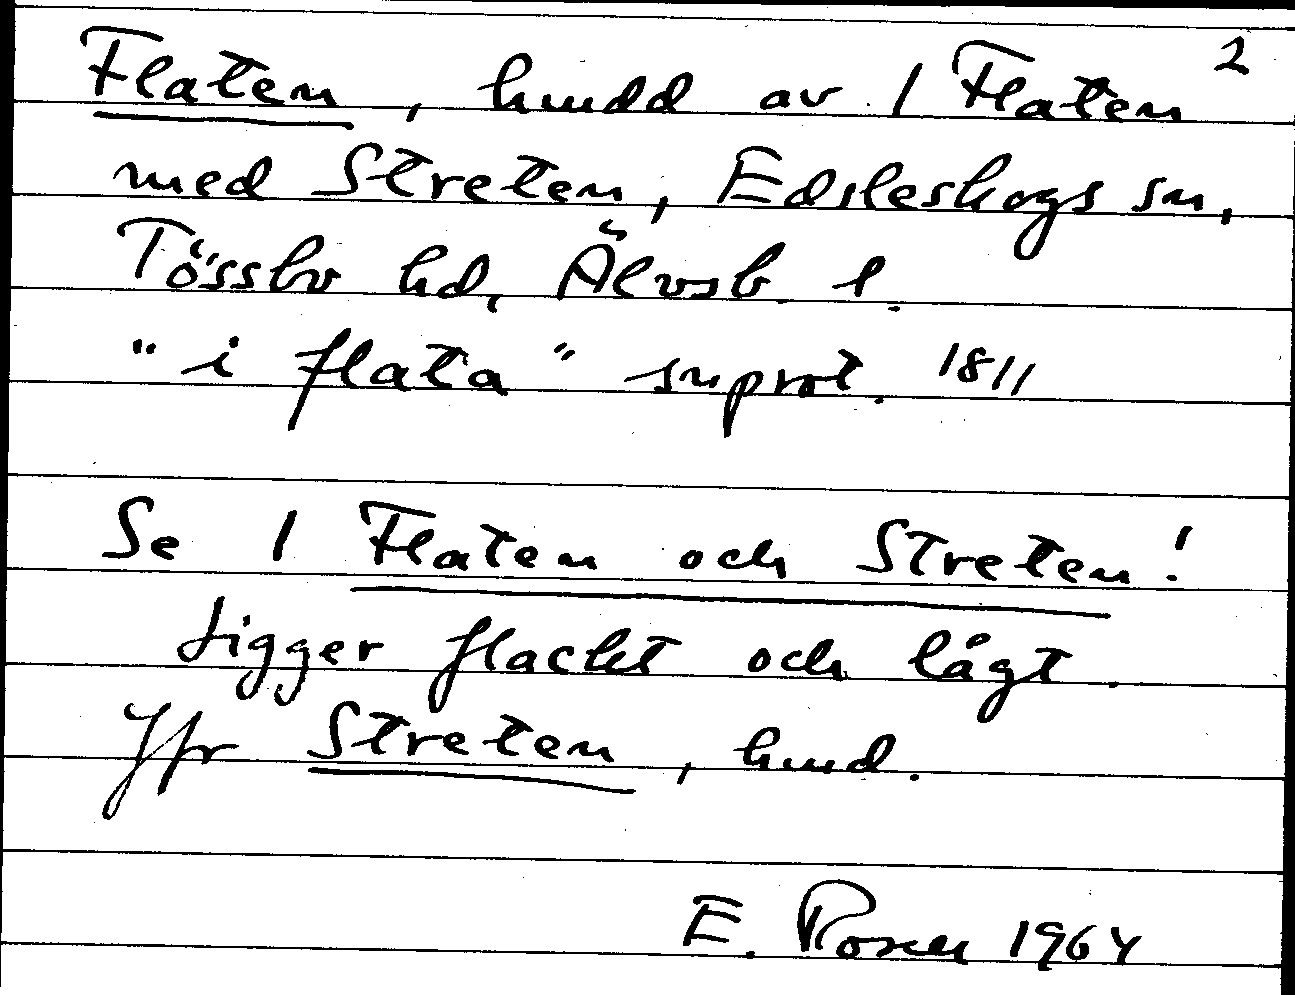 2
Flaten, hmdd av 1 Flaten
med Streten, Edsleskogs sn,
Tössbo hd, Älvsb. l.
"i flata" snprot. 1811
Se 1 Flaten och Streten!
Ligger flackt och lågt.
Jfr Streten, hmd.
E. Rosen 1964